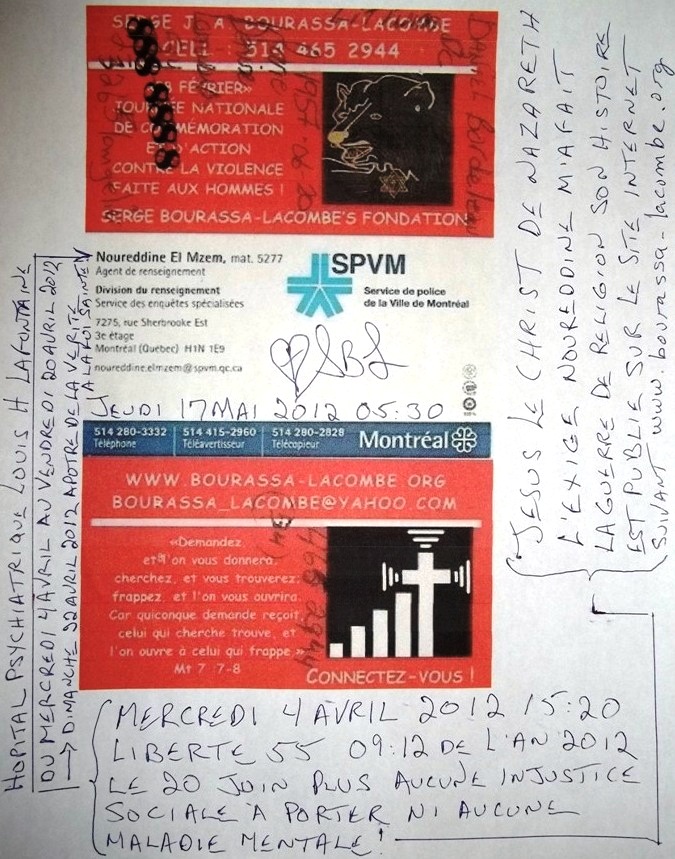 SERGE J. A BOURASSA-LACOMBE
CELL : 514 465 2944
8 FÉVRIER»
JOURNÉE NATIONALE
DE COMMÉMORATION
ET D'ACTION
CONTRE LA VIOLENCE
FAITE AUX HOMMES !
SERGE BOURASSA-LACOMBE'S FONDATION
DANIEL
Noureddine El Mzem, mat. 5277
Agent de renseignement
Division du renseignement
Service des enquêtes spécialisées
7275, rue Sherbrooke Est
3e étage
Montréal (Québec) H1N 1E9
noureddine.elmzem@spvm.qc.ca
SPVM
Service de police
de la Ville de Montréal
SBL
JEUDI 17 MAI 2012 05:30
514 280-3332
Téléphone
514 415-2960
Téléavertisseur
514 280-2828
Télécopieur
Montréal
WWW.BOURASSA-LACOMBE.ORG
BOURASSA_LACOMBE@YAHOO.COM
«Demandez
et l'on vous donnera,
cherchez, et vous trouverez,
frappez, et l'on vous ouvrira.
Car quiconque demande reçoit,
celui qui cherche trouve, et
l'on ouvre à celui qui frappe.»
Mt 7 :7-8
CONNECTEZ-VOUS !
MERCREDI 4 AVRIL 2012 15:20
LIBERTE 55 09:12 DE L'AN 2012
LE 20 JUIN PLUS AUCUNE INJUSTICE
SOCIALE À PORTER NI AUCUNE
MALADIE MENTALE!
HOPITAL PSYCHIATRIQUE LOUIS H LAFONTAINE
DU MERCREDI 4 AVRIL AU VENDREDI 20 AVRIL 2012
DIMANCHE 22 AVRIL 2012 APOTRE DE LA VERITE
JESUS LE CHRIST DE NAZARETH
L'EXIGE NOUREDDINE M'A FAIT
LA GUERRE DE RELIGION SON HISTOIRE
EST PUBLIE SUR LE SITE INTERNET
SUIVANT www.bourassa-lacombe.org